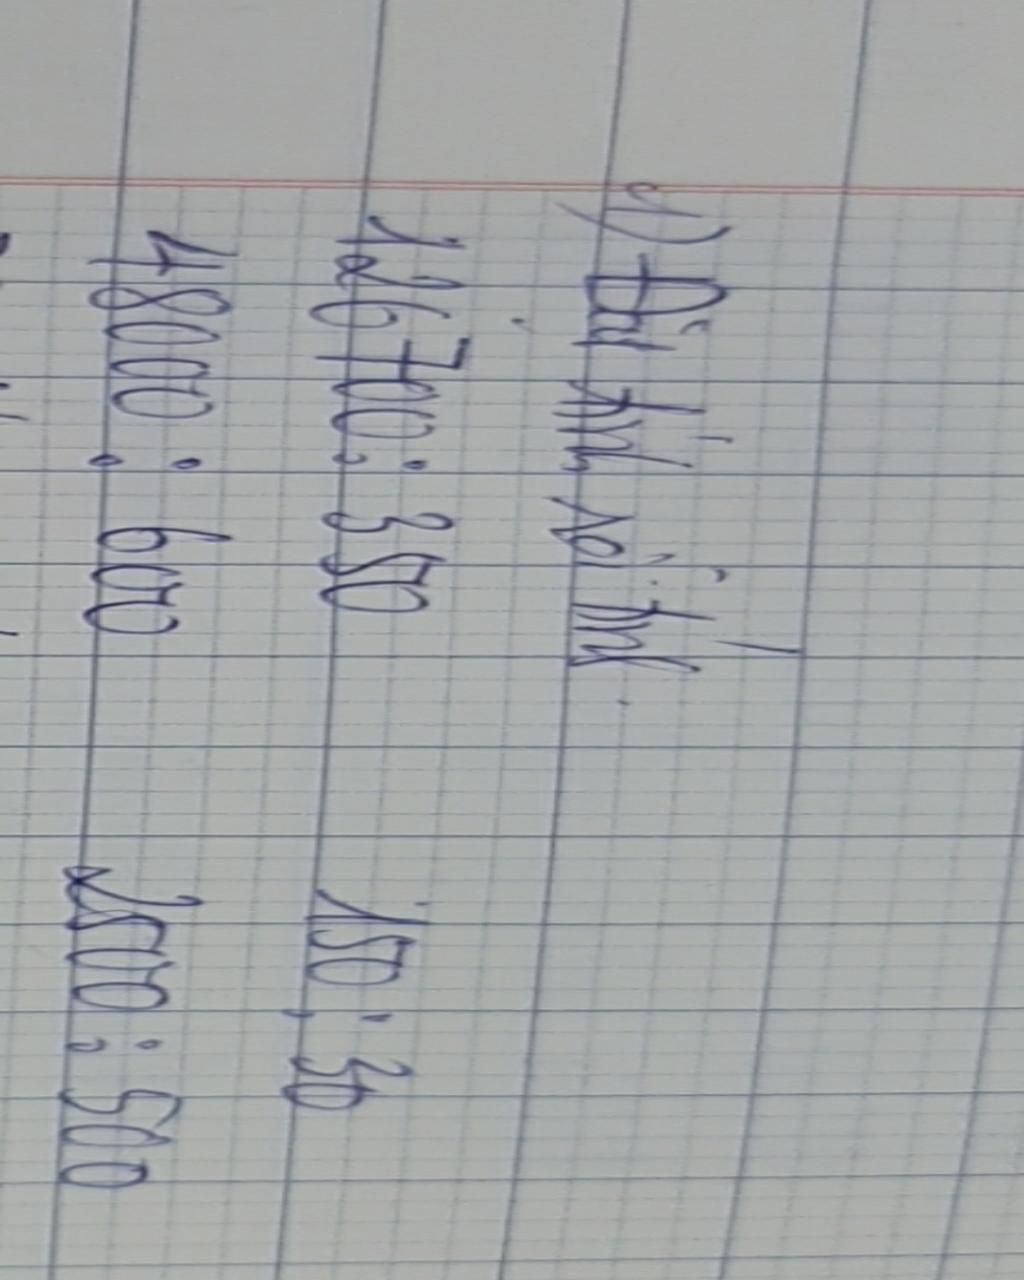 1) Đặt tính rồi tính.
126700 : 350 150 : 30
48000 : 600 2500 : 500